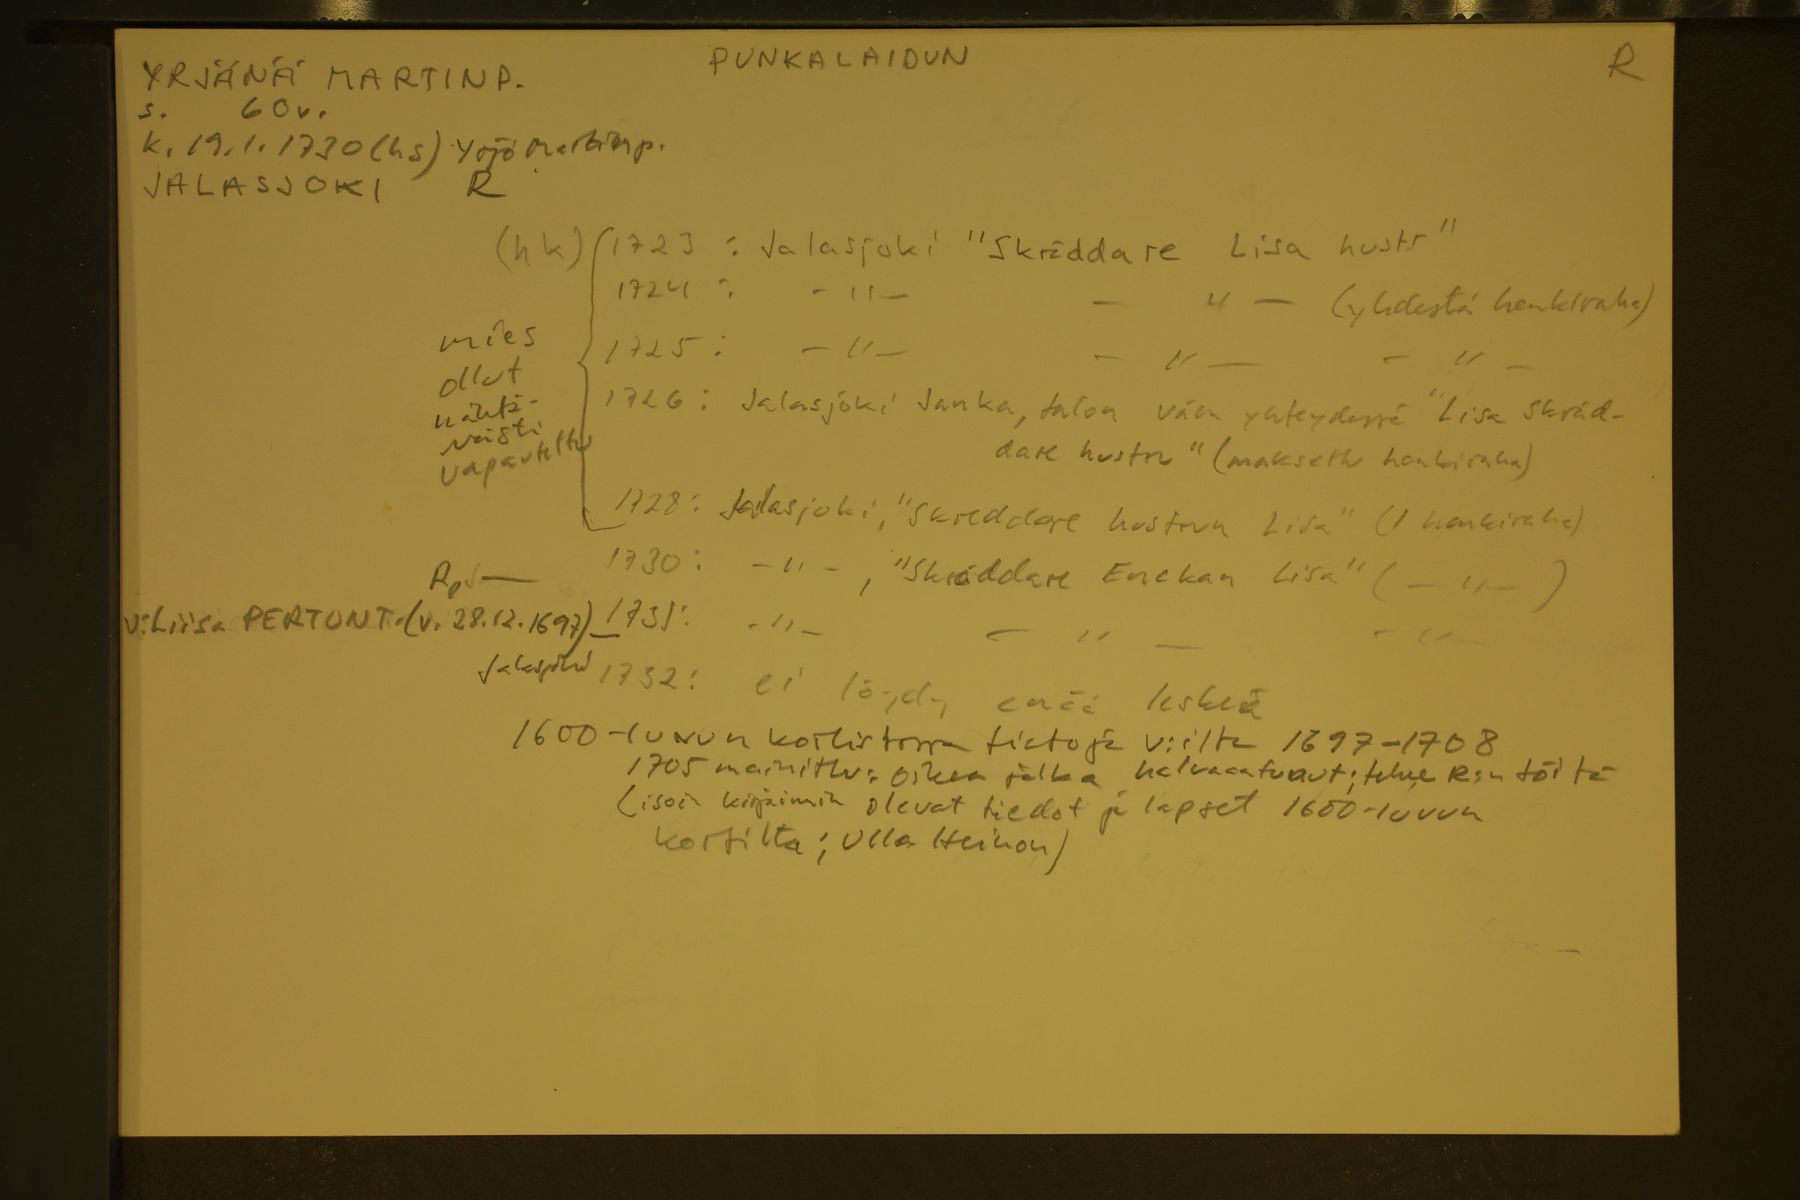 PUNKALAIDUN
R
YRJÄNÄ MARTINP.
s. 60v.
k. 19.1.1730 (hs) Yrjö Martinp.
JALASJOKI R
(hk) 1723 : Jalasjoki "Skräddare Lisa hustr"
1724 : -"- -"- (yhdestä henkiraha)
1725 : -"- -"- -"-
mies ollut nähtävästi vapautettu
1726 : Jalasjoki Janka, talon väen yhteydessä "Lisa Skräd-
dare hustru" (maksettu henkiraha)
1728 : Jalasjoki, "Skreddare hustrun Lisa" (1 henkiraha)
1730 : -"-, "Skräddare Enckan Lisa" (-"-)
v: Liisa PERTUNT. (v. 28.12.1697) 1731: -"- -"- -"-
Jalasjoki
1732 : ei löydy enää leskeä
1600-luvun kortistossa tietoja v:ilta 1697-1708
1705 mainittu: oikea jalka halvaantunut; tekee R:n töitä
(isoin kirjaimin olevat tiedot ja lapset 1600-luvun
kortilta; Ulla Heinon)